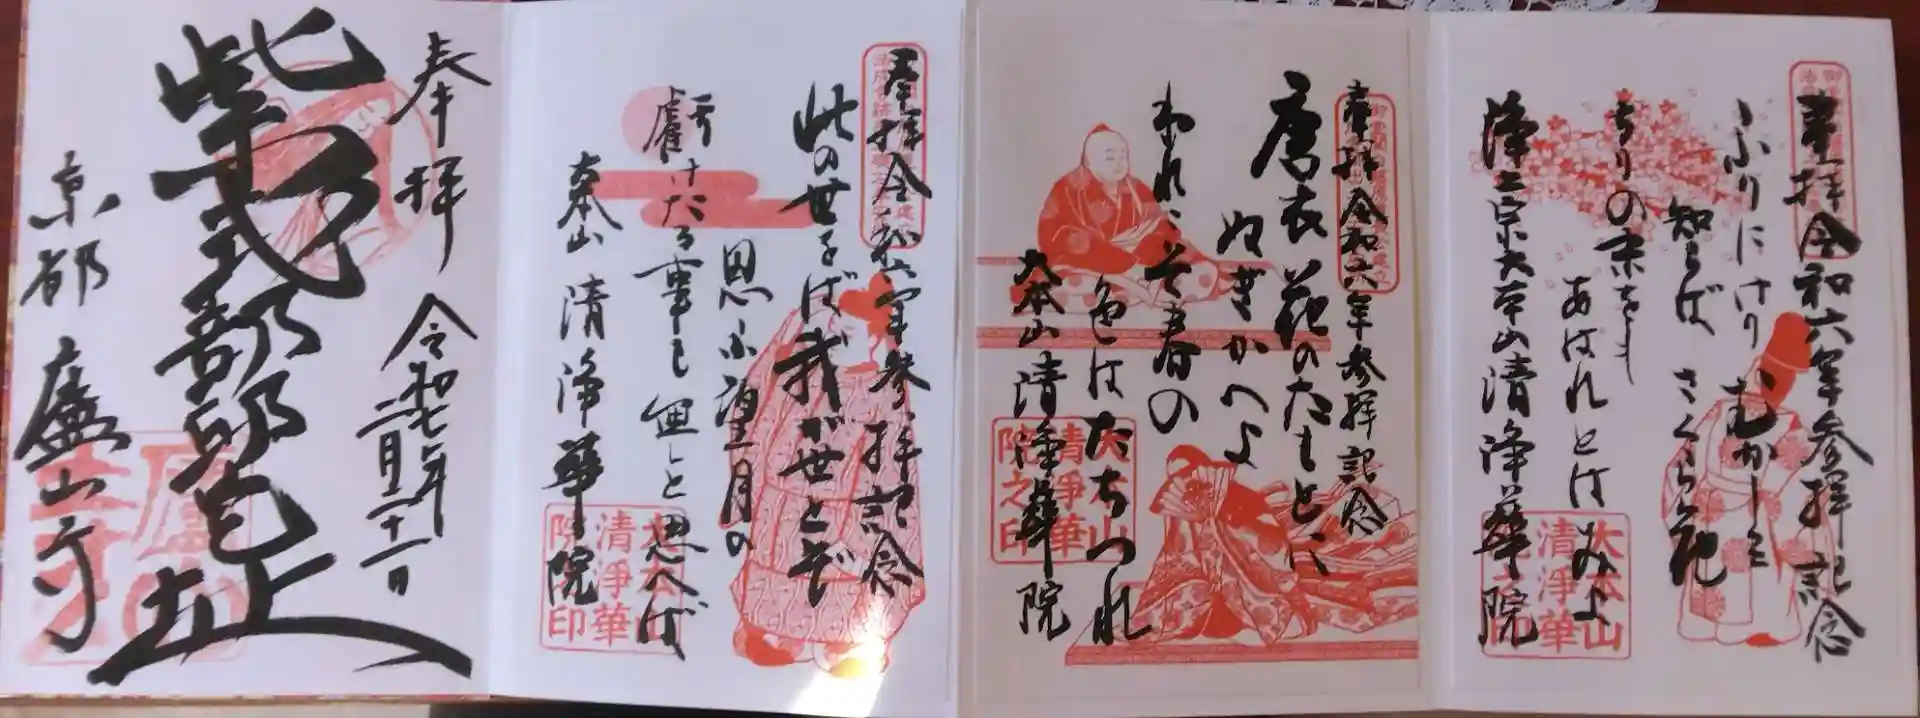 奉拝
令和七年
二月二十一日
紫式部邸宅址
京都 廬山寺
奉拝 令和六年参拝記念
此の世をば我が世とぞ
思ふ望月の
虧けたる事も無しと思へば
大本山 清浄華院
大本山
清浄華
院之印
奉拝 令和六年参拝記念
唐衣花のたもとに
ぬぎかへよ
われこそ春の
色はたちつれ
大本山 清浄華院
大本山
清浄華
院之印
奉拝 令和六年参拝記念
ふりにけり むかしを
知らば さくら花
ちりの末をも
あはれとはみよ
浄土宗大本山 清浄華院
大本山
清浄華
院之印